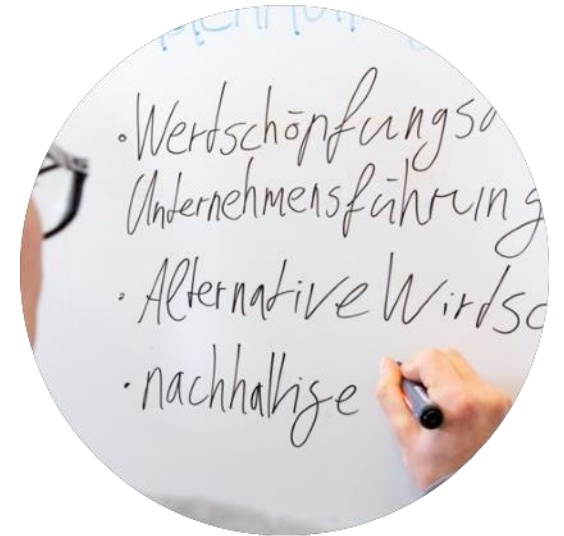 • Wertschöpfungso
Unternehmensführung
• Alternative Wirtsc
• nachhaltige